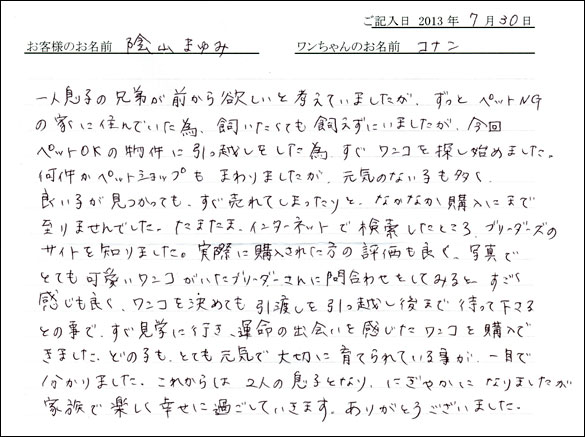 ご記入日 2013年 7月30日
お客様のお名前 陰山 まゆみ ワンちゃんのお名前 コナン
一人息子の兄弟が前から欲しいと考えていましたが、ずっとペットNG
の家に住んでいた為、飼いたくても飼えずにいましたが、今回
ペットOKの物件に引っ越しをした為、すぐワンコを探し始めました。
何件かペットショップもまわりましたが、元気のない子も多く、
良い子が見つかっても、すぐ売れてしまったりと、なかなか購入にまで
至りませんでした。たまたま、インターネットで検索したところ、ブリーダーズの
サイトを知りました。実際に購入された方の評価も良く、写真で
とても可愛いワンコがいたブリーダーさんに問合わせをしてみると、すごく
感じも良く、ワンコを決めても引渡しを引っ越し後まで待って下さる
との事で、すぐ見学に行き、運命の出会いを感じたワンコを購入で
きました。どの子も、とても元気で大切に育てられている事が、一目で
分かりました。これからは2人の息子となり、にぎやかになりましたが
家族で楽しく幸せに過ごしていきます。ありがとうございました。